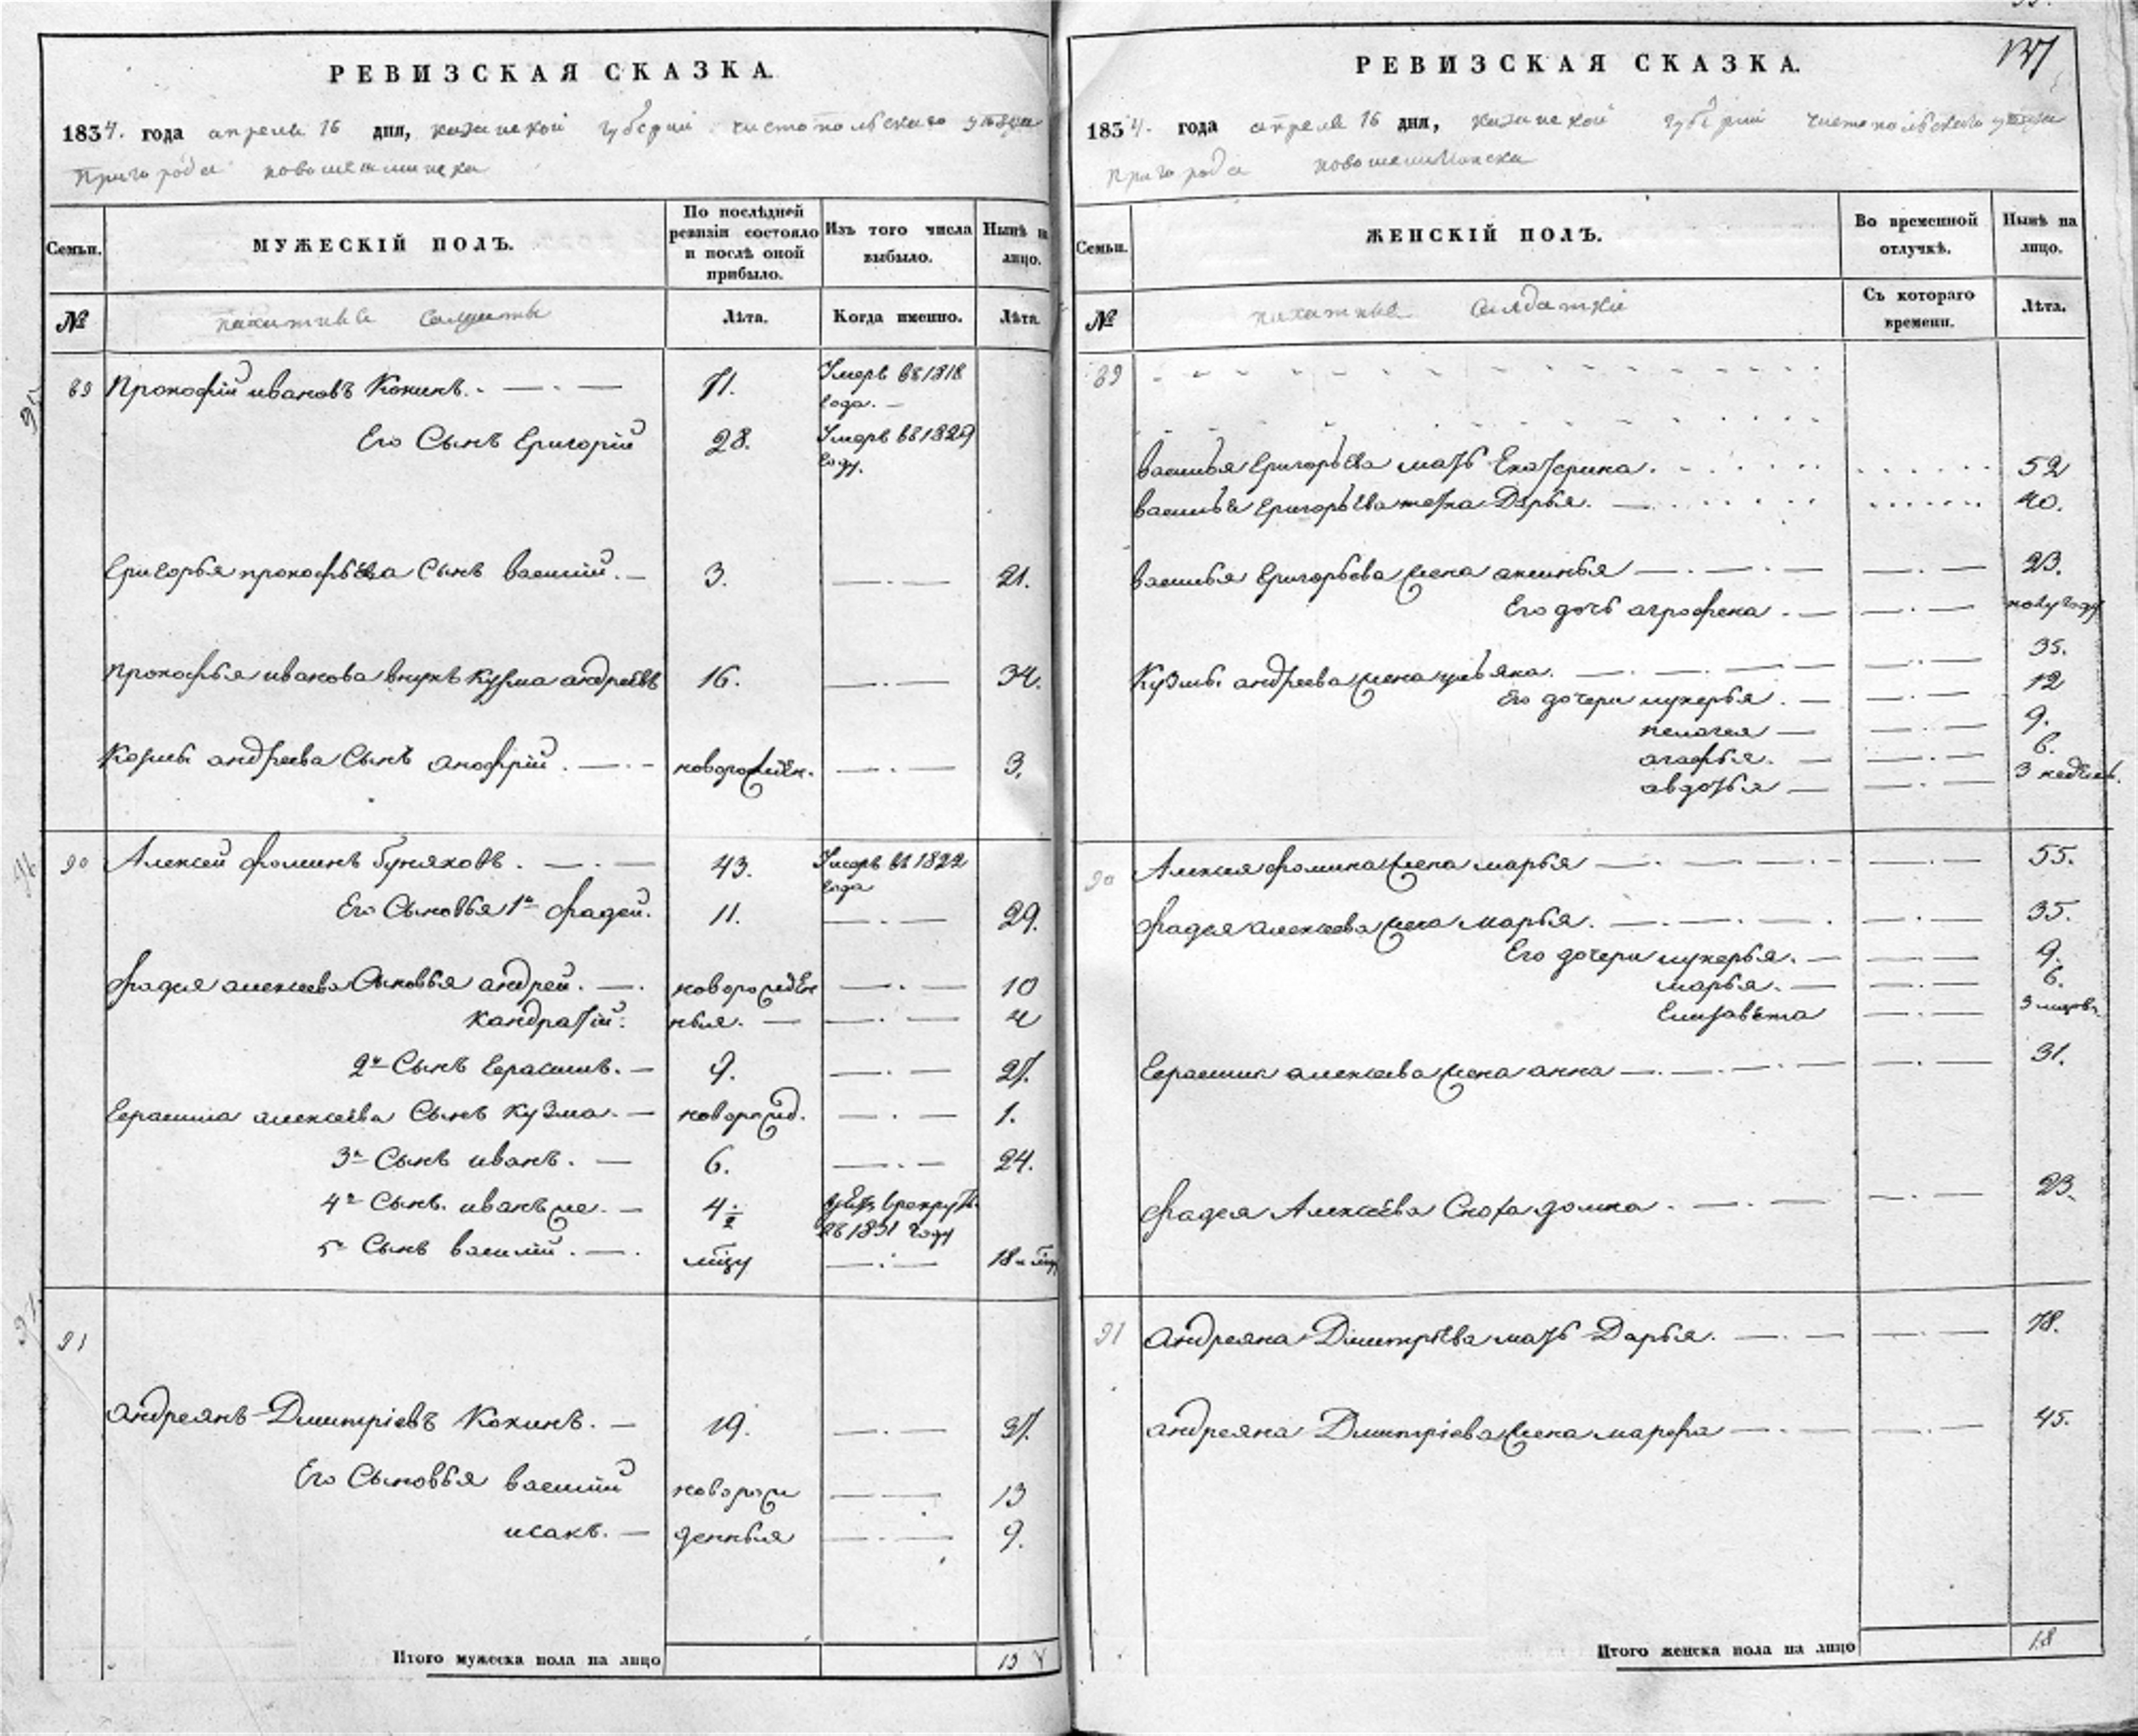 РЕВИЗСКАЯ СКАЗКА.
1834. года апреля 16 дня, казанской губернии чистопольского уезда
Пригорода новошешминска
Семьи.
МУЖЕСКІЙ ПОЛЪ.
По послѣдней ревизіи состояло и послѣ оной прибыло.
Изъ того числа выбыло.
Нынѣ на лицо.
№
пахатные солдаты
Лѣта.
Когда именно.
Лѣта.
89 Прокофій ивановъ Кокинъ. 71. Умеръ въ 1818 года.
Его Сынъ Григорій 28. Умеръ въ 1829 году.
Григорья прокофьева Сынъ василій. 3. 21.
прокофья иванова внукъ кузма андреевъ 16. 34.
Козмы андреева Сынъ анофрій. новорожден. 3.
90 Алексей фоминъ Буняковъ. 43. Умеръ въ 1822 года
Его Сыновья 1й фадей. 11. 29.
фадея алексеева Сыновья андрей. новорожден 10
кандратій. ныя. 4
2й Сынъ Герасимъ. 9. 27.
Герасима алексеева Сынъ кузма. новорожд. 1.
3й Сынъ иванъ. 6. 24.
4й Сынъ. иванъ же. 4½ взятъ врекруты въ 1831 году
5й Сынъ василій. мцу 18 и мцъ
91
андреянъ Дмитріевъ Кокинъ. 19. 37.
Его Сыновья василій новорож 13
исакъ. денныя 9.
Итого мужеска пола на лицо 13
137
РЕВИЗСКАЯ СКАЗКА.
1834. года апреля 16 дня, казанской губернии чистопольского уезда
Пригорода новошешминска
Семьи.
ЖЕНСКІЙ ПОЛЪ.
Во временной отлучкѣ.
Нынѣ на лицо.
№
пахатные солдатки
Съ котораго времени.
Лѣта.
89
василья Григорьева мать Екатерина. 52
василья Григорьева тетка Дарья. 40.
василья Григорьева жена аксинья 23.
Его дочь аграфена. полугоду
Кузмы андреева жена ульяна. 35.
Его дочери лукерья. 12
пелагея 9.
агафья. 6.
авдотья 3 недель.
90 Алексея фомина жена марья 55.
фадея алексеева жена марья. 35.
Его дочери лукерья. 9.
марья. 6.
Елизавета 3 мцовъ
Герасима алексеева жена анна 31.
фадея Алексеева Сноха домна. 23.
91 андреяна Дмитріева мать Дарья. 78.
андреяна Дмитріева жена марфа 45.
Итого женска пола на лицо 18